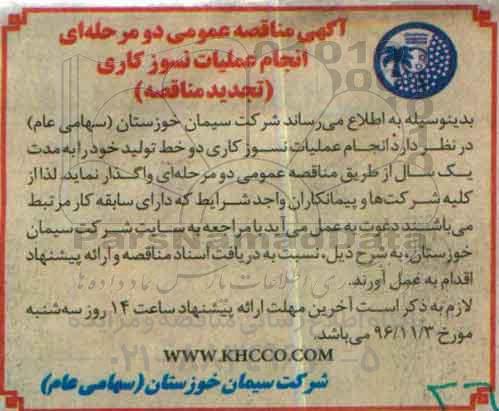 آگهی مناقصه عمومی دو مرحله‌ای
انجام عملیات نسوز کاری
(تجدید مناقصه)
بدینوسیله به اطلاع می‌رساند شرکت سیمان خوزستان (سهامی عام)
در نظر دارد انجام عملیات نسوز کاری دو خط تولید خود را به مدت
یک سال از طریق مناقصه عمومی دو مرحله‌ای واگذار نماید. لذا از
کلیه شرکت‌ها و پیمانکاران واجد شرایط که دارای سابقه کار مرتبط
می‌باشند دعوت به عمل می‌آید با مراجعه به سایت شرکت سیمان
خوزستان، به شرح ذیل، نسبت به دریافت اسناد مناقصه و ارائه پیشنهاد
اقدام به عمل آورند.
لازم به ذکر است آخرین مهلت ارائه پیشنهاد ساعت ۱۴ روز سه‌شنبه
مورخ ۹۶/۱۱/۳ می‌باشد.
WWW.KHCCO.COM
شرکت سیمان خوزستان (سهامی عام)
ParsNamadData